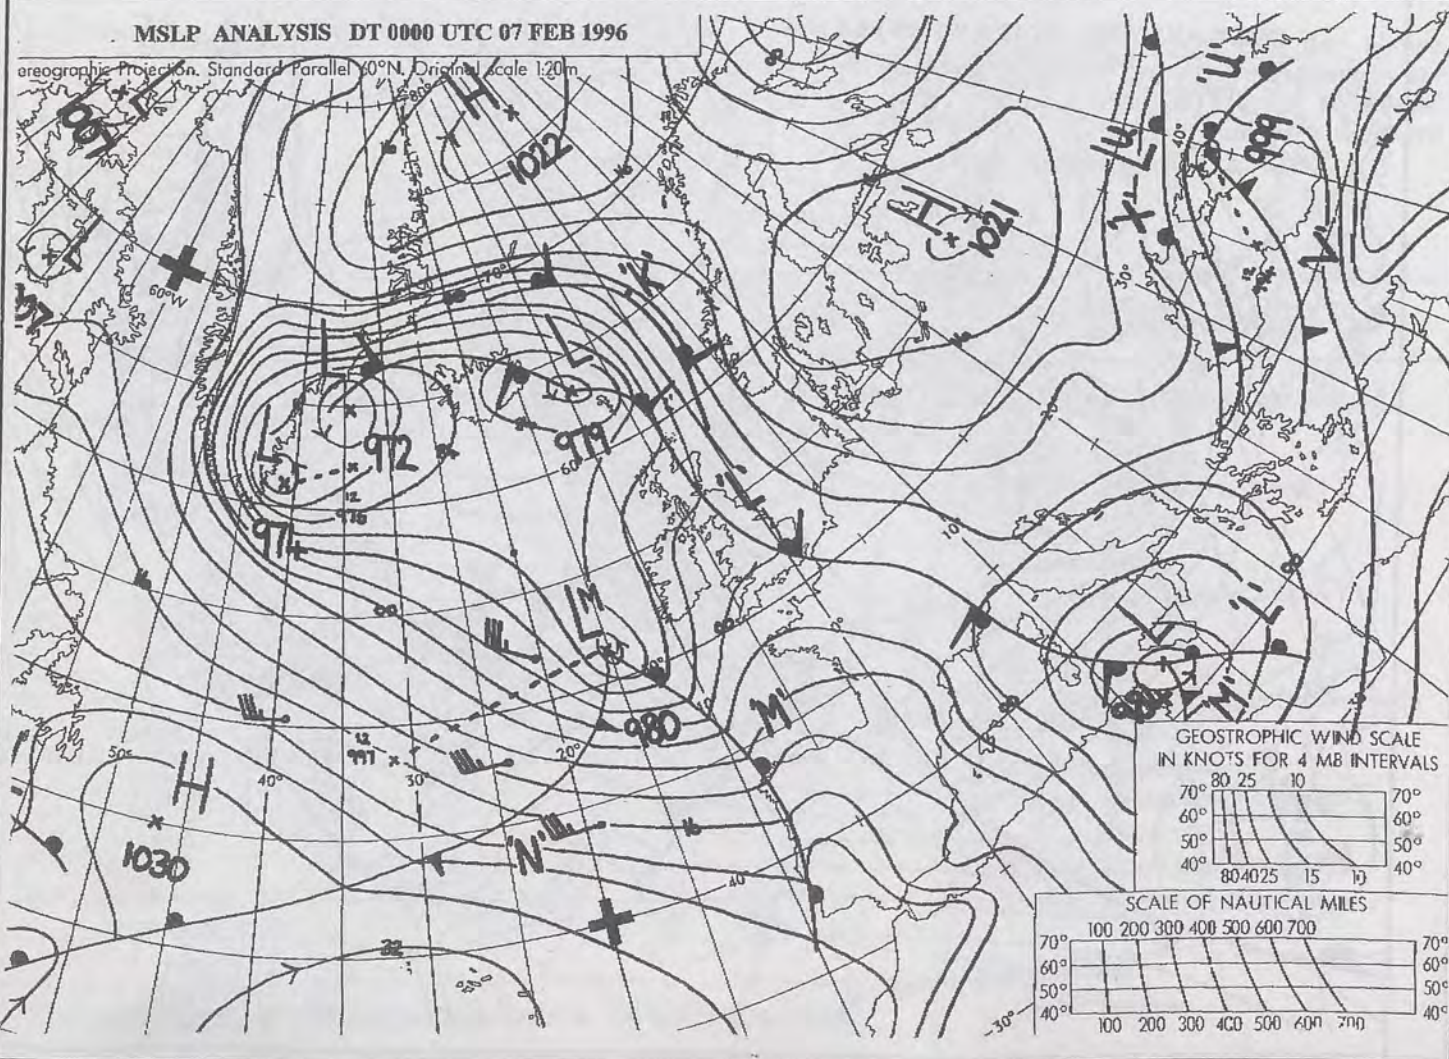 MSLP ANALYSIS DT 0000 UTC 07 FEB 1996
ereographic Projection. Standard Parallel 60°N. Original scale 1:20m
80°
H
1022
L
1007
L
60°W
70°
'K'
H
1021
16
'X'
L
'U'
'U'
40°
999
'V'
12
30°
L
L
L
972
979
60°
12
976
971
'L'
10°
00
L
M
980
10
'M'
50°
H
1030
40°
12
997
30°
20°
16
'N'
40°
32
L
'L'
'M'
GEOSTROPHIC WIND SCALE
IN KNOTS FOR 4 MB INTERVALS
80 25 10
70° 70°
60° 60°
50° 50°
40° 40°
80 40 25 15 10
SCALE OF NAUTICAL MILES
100 200 300 400 500 600 700
70° 70°
60° 60°
50° 50°
40° 40°
100 200 300 400 500 600 700
30°